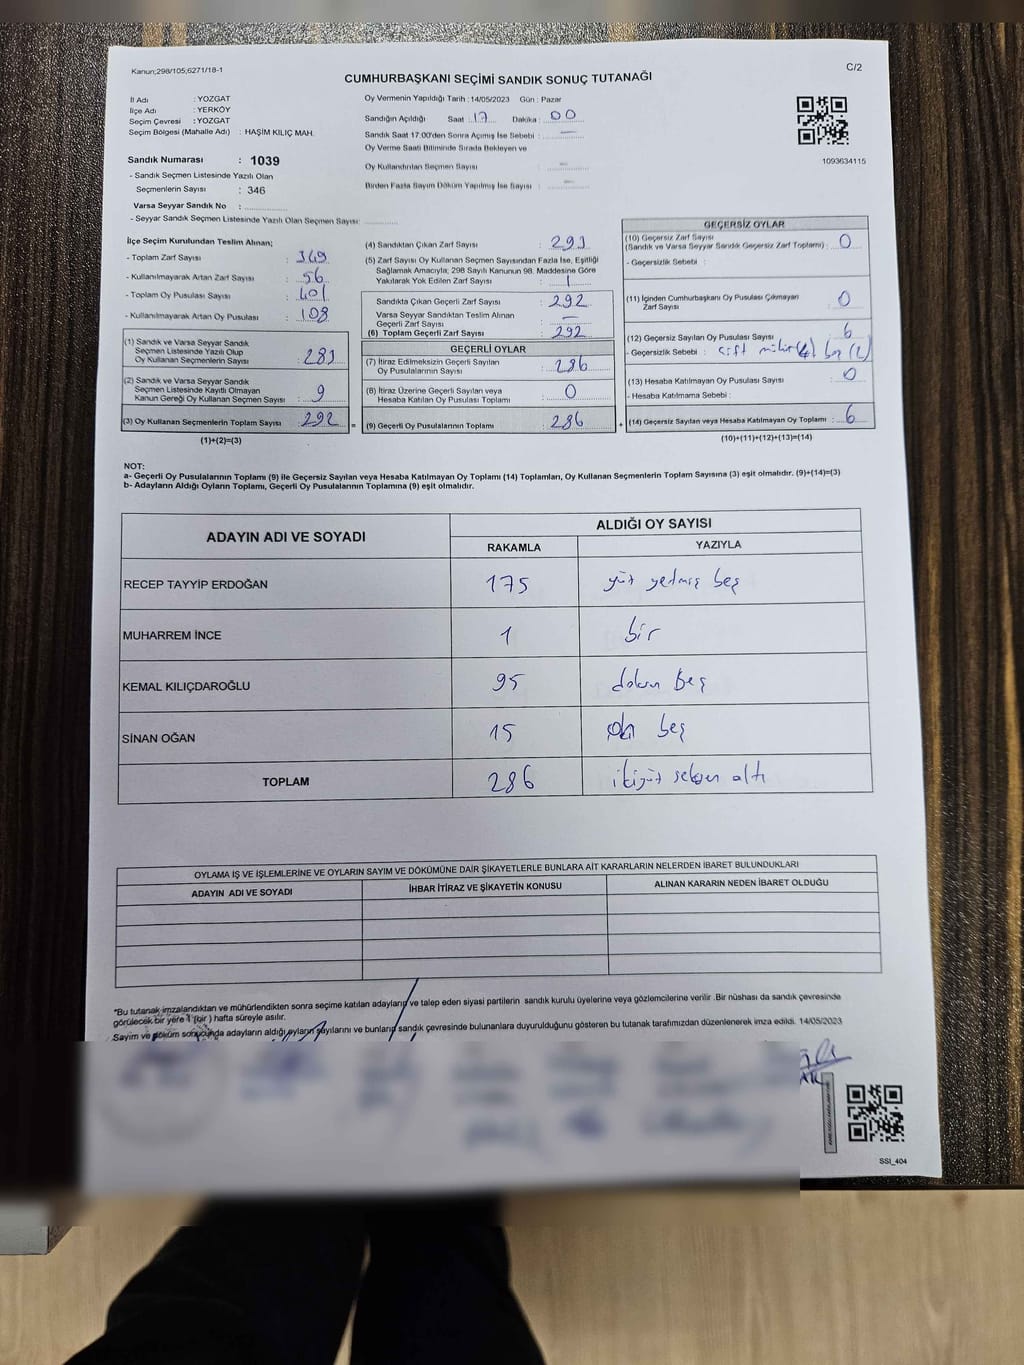 Kanun;298/105;6271/18-1
C/2
CUMHURBAŞKANI SEÇİMİ SANDIK SONUÇ TUTANAĞI
İl Adı : YOZGAT
İlçe Adı : YERKÖY
Seçim Çevresi : YOZGAT
Seçim Bölgesi (Mahalle Adı) : HAŞİM KILIÇ MAH.
Sandık Numarası : 1039
- Sandık Seçmen Listesinde Yazılı Olan
Seçmenlerin Sayısı : 346
Varsa Seyyar Sandık No :
- Seyyar Sandık Seçmen Listesinde Yazılı Olan Seçmen Sayısı:
Oy Vermenin Yapıldığı Tarih : 14/05/2023 Gün : Pazar
Sandığın Açıldığı Saat : 17 Dakika : 00
Sandık Saat 17:00'den Sonra Açımış İse Sebebi : —
Oy Verme Saati Bitiminde Sırada Bekleyen ve
Oy Kullandırılan Seçmen Sayısı : —
Birden Fazla Sayım Döküm Yapılmış İse Sayısı : —
1093634115
İlçe Seçim Kurulundan Teslim Alınan;
- Toplam Zarf Sayısı : 349
- Kullanılmayarak Artan Zarf Sayısı : 56
- Toplam Oy Pusulası Sayısı : 401
- Kullanılmayarak Artan Oy Pusulası : 108
(1) Sandık ve Varsa Seyyar Sandık
Seçmen Listesinde Yazılı Olup
Oy Kullanan Seçmenlerin Sayısı : 283
(2) Sandık ve Varsa Seyyar Sandık
Seçmen Listesinde Kayıtlı Olmayan
Kanun Gereği Oy Kullanan Seçmen Sayısı : 9
(3) Oy Kullanan Seçmenlerin Toplam Sayısı : 292
(1)+(2)=(3)
(4) Sandıktan Çıkan Zarf Sayısı : 293
(5) Zarf Sayısı Oy Kullanan Seçmen Sayısından Fazla İse, Eşitliği
Sağlamak Amacıyla; 298 Sayılı Kanunun 98. Maddesine Göre
Yakılarak Yok Edilen Zarf Sayısı : 1
Sandıkta Çıkan Geçerli Zarf Sayısı : 292
Varsa Seyyar Sandıktan Teslim Alınan
Geçerli Zarf Sayısı : —
(6) Toplam Geçerli Zarf Sayısı : 292
GEÇERLİ OYLAR
(7) İtiraz Edilmeksizin Geçerli Sayılan
Oy Pusulalarının Sayısı : 286
(8) İtiraz Üzerine Geçerli Sayılan veya
Hesaba Katılan Oy Pusulaları Toplamı : 0
(9) Geçerli Oy Pusulalarının Toplamı : 286
GEÇERSİZ OYLAR
(10) Geçersiz Zarf Sayısı
(Sandık ve Varsa Seyyar Sandık Geçersiz Zarf Toplamı) : 0
- Geçersizlik Sebebi :
(11) İçinden Cumhurbaşkanı Oy Pusulası Çıkmayan
Zarf Sayısı : 0
(12) Geçersiz Sayılan Oy Pusulası Sayısı : 6
- Geçersizlik Sebebi : çift mühür(4) boş (2)
(13) Hesaba Katılmayan Oy Pusulası Sayısı : 0
- Hesaba Katılmama Sebebi :
(14) Geçersiz Sayılan veya Hesaba Katılmayan Oy Toplamı : 6
(10)+(11)+(12)+(13)=(14)
NOT:
a- Geçerli Oy Pusulalarının Toplamı (9) ile Geçersiz Sayılan veya Hesaba Katılmayan Oy Toplamı (14) Toplamları, Oy Kullanan Seçmenlerin Toplam Sayısına (3) eşit olmalıdır. (9)+(14)=(3)
b- Adayların Aldığı Oyların Toplamı, Geçerli Oy Pusulalarının Toplamına (9) eşit olmalıdır.
ADAYIN ADI VE SOYADI
ALDIĞI OY SAYISI
RAKAMLA YAZIYLA
RECEP TAYYİP ERDOĞAN 175 yüz yetmiş beş
MUHARREM İNCE 1 bir
KEMAL KILIÇDAROĞLU 95 doksan beş
SİNAN OĞAN 15 on beş
TOPLAM 286 ikiyüz seksen altı
OYLAMA İŞ VE İŞLEMLERİNE VE OYLARIN SAYIM VE DÖKÜMÜNE DAİR ŞİKAYETLERLE BUNLARA AİT KARARLARIN NELERDEN İBARET BULUNDUKLARI
ADAYIN ADI VE SOYADI İHBAR İTİRAZ VE ŞİKAYETİN KONUSU ALINAN KARARIN NEDEN İBARET OLDUĞU
*Bu tutanak imzalandıktan ve mühürlendikten sonra seçime katılan adayların ve talep eden siyasi partilerin sandık kurulu üyelerine veya gözlemcilerine verilir .Bir nüshası da sandık çevresinde
görülecek bir yere 1 (bir ) hafta süreyle asılır.
Sayım ve döküm sonucunda adayların aldığı oyların sayılarını ve bunların sandık çevresinde bulunanlara duyurulduğunu gösteren bu tutanak tarafımızdan düzenlenerek imza edildi. 14/05/2023
SSI_404